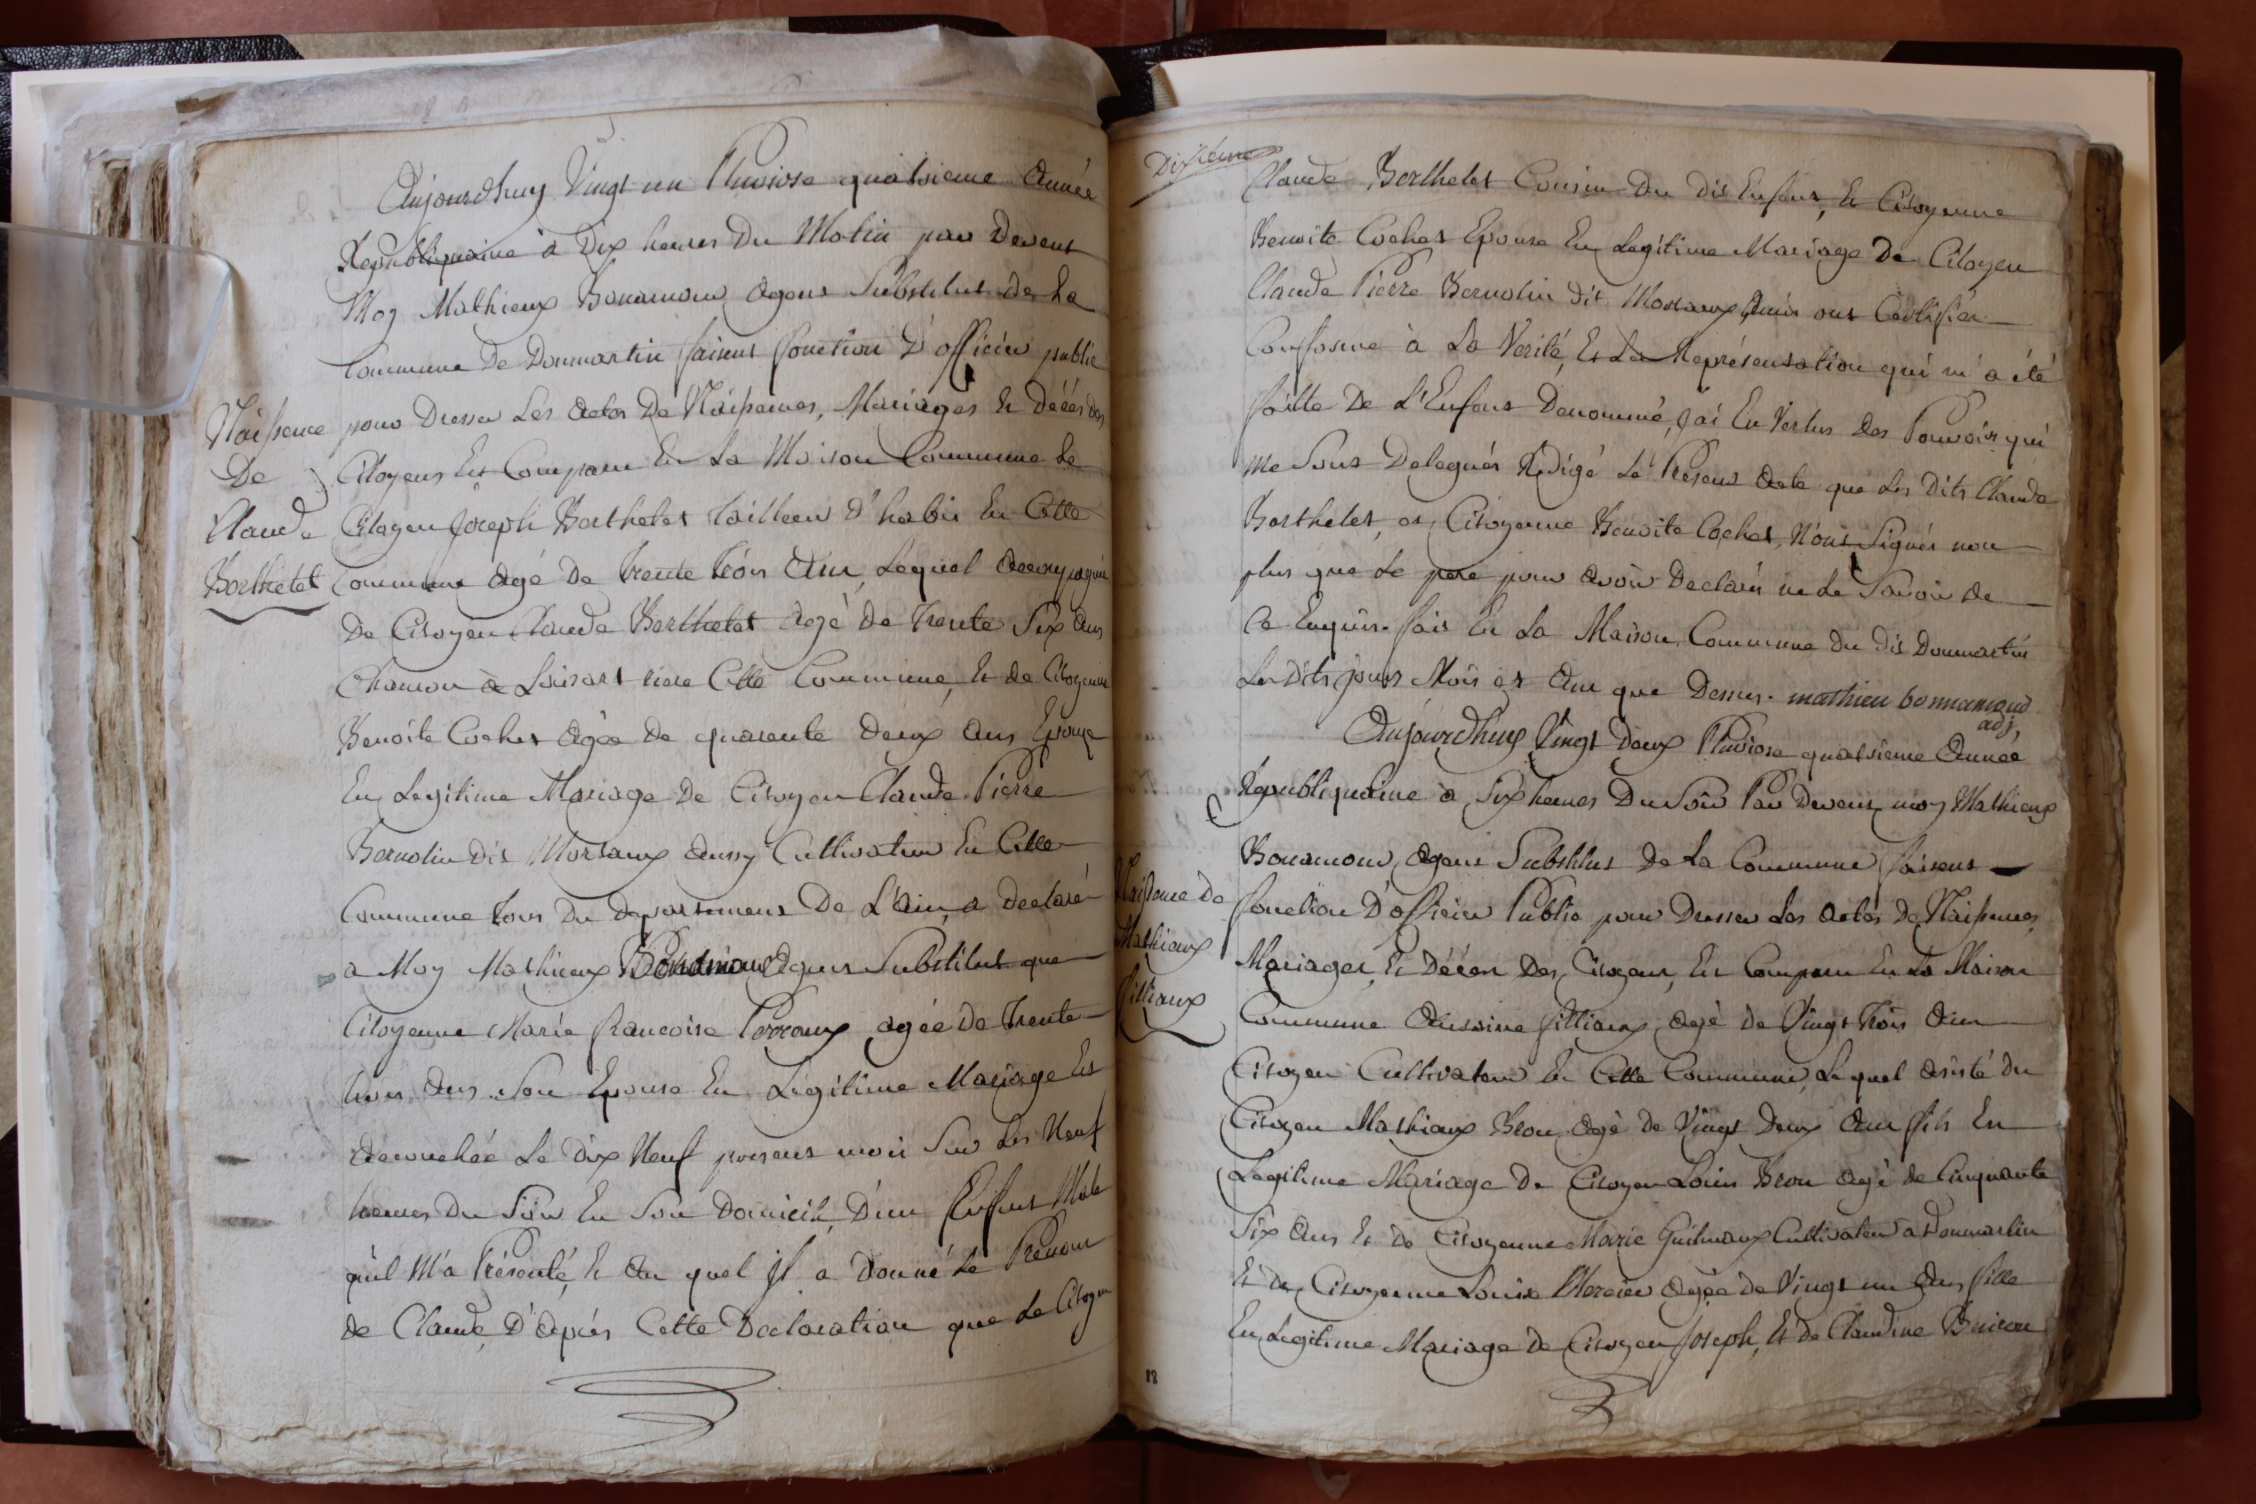 Aujourdhuy Vingt un Pluviose quatrieme Année
Republiquaine à Dix heures Du Matin par Devent
Moy Mathieux Bonamour agent Substitut de La
Commune De Dommartin faisent fonction D'officier public
pour Dresser Les actes De Naissances, Mariages et Décés des
Citoyens Est Comparu En La Maison Commune Le
Citoyen Joseph Berthelet tailleur d'habis En Cette
Commune agé De trente trois Ans, Lequel accompagné
De Citoyen Claude Berthelet agé De Trente Six Ans
à Loisart riere Cette Commune, Et de Citoyenne
Benoite Cochet agée De quarente Deux Ans Epouse
En Legitime Mariage De Citoyen Claude Pierre
Bernolin dit Moraux aussy Cultivateur En Cette
Commune tous Du departement De L'ain, a declaré
a Moy Mathieux Bonamour agent Substitut que
Citoyenne Marie francoise agée De Trente
trois Ans Son Epouse En Légitime Mariage Est
accouchée Le Dix Neuf present mois Sur Les Neuf
heures Du Soir En Son Domicile D'un Enfant Male
qu'il M'a Présenté, et Au quel Il a Donné Le Prénom
de Claude, D'apiés Cette Declaration que Le Citoyen
Naissence
De
Claude
Berthelet
Dixieme
Claude Berthelet Cousin Du Dit Enfant, Et Citoyenne
Benoite Cochet Epouse En Legitime Mariage De Citoyen
Claude Pierre Bernolin dit Moraux ont Certifier
Conforme à La Verité, Et La Représensation qui m'a été
faitte De L'Enfant Denommé, J'ai En Vertus Des Pouvoir qui
me Sont Delegués Rédigé Le Present Acte que Les Dits Claude
Berthelet, et Citoyenne Benoite Cochet, N'ont Signés non
plus que Le pere pour avoir Declarés ne Le Savoir De
Ce Enquis. fait En La Maison Commune Du Dit Dommartin
Les Dits jours Mois et An que Dessus. mathieu bonnamour
adj
Aujourdhuy Vingt Deux Pluviose quatrieme Année
Republiquaine a Six heures Du Soir Par Devent moy Mathieux
Bonamour, Agent Substitut De La Commune faisent
fonction D'officier Public pour Dresser Les actes De Naissances,
Mariages, Et Décés Des Citoyens, Est Comparu En La Maison
Commune Antoine filliaux agé de Vingt trois Ans
Citoyen Cultivateur En Cette Commune, Le quel assisté du
Citoyen Mathieux Bron agé de Vingt Deux Ans fils En
Legitime Mariage De Citoyen Louis Bron agé de Cinquante
Six ans Et De Citoyenne Marie Cultivateur a Dommartin
Et de Citoyenne Louise Mercier agée De Vingt un Ans fille
En Légitime Mariage de Citoyen Joseph, Et de Claudine
Naissence de
Mathieux
filliaux